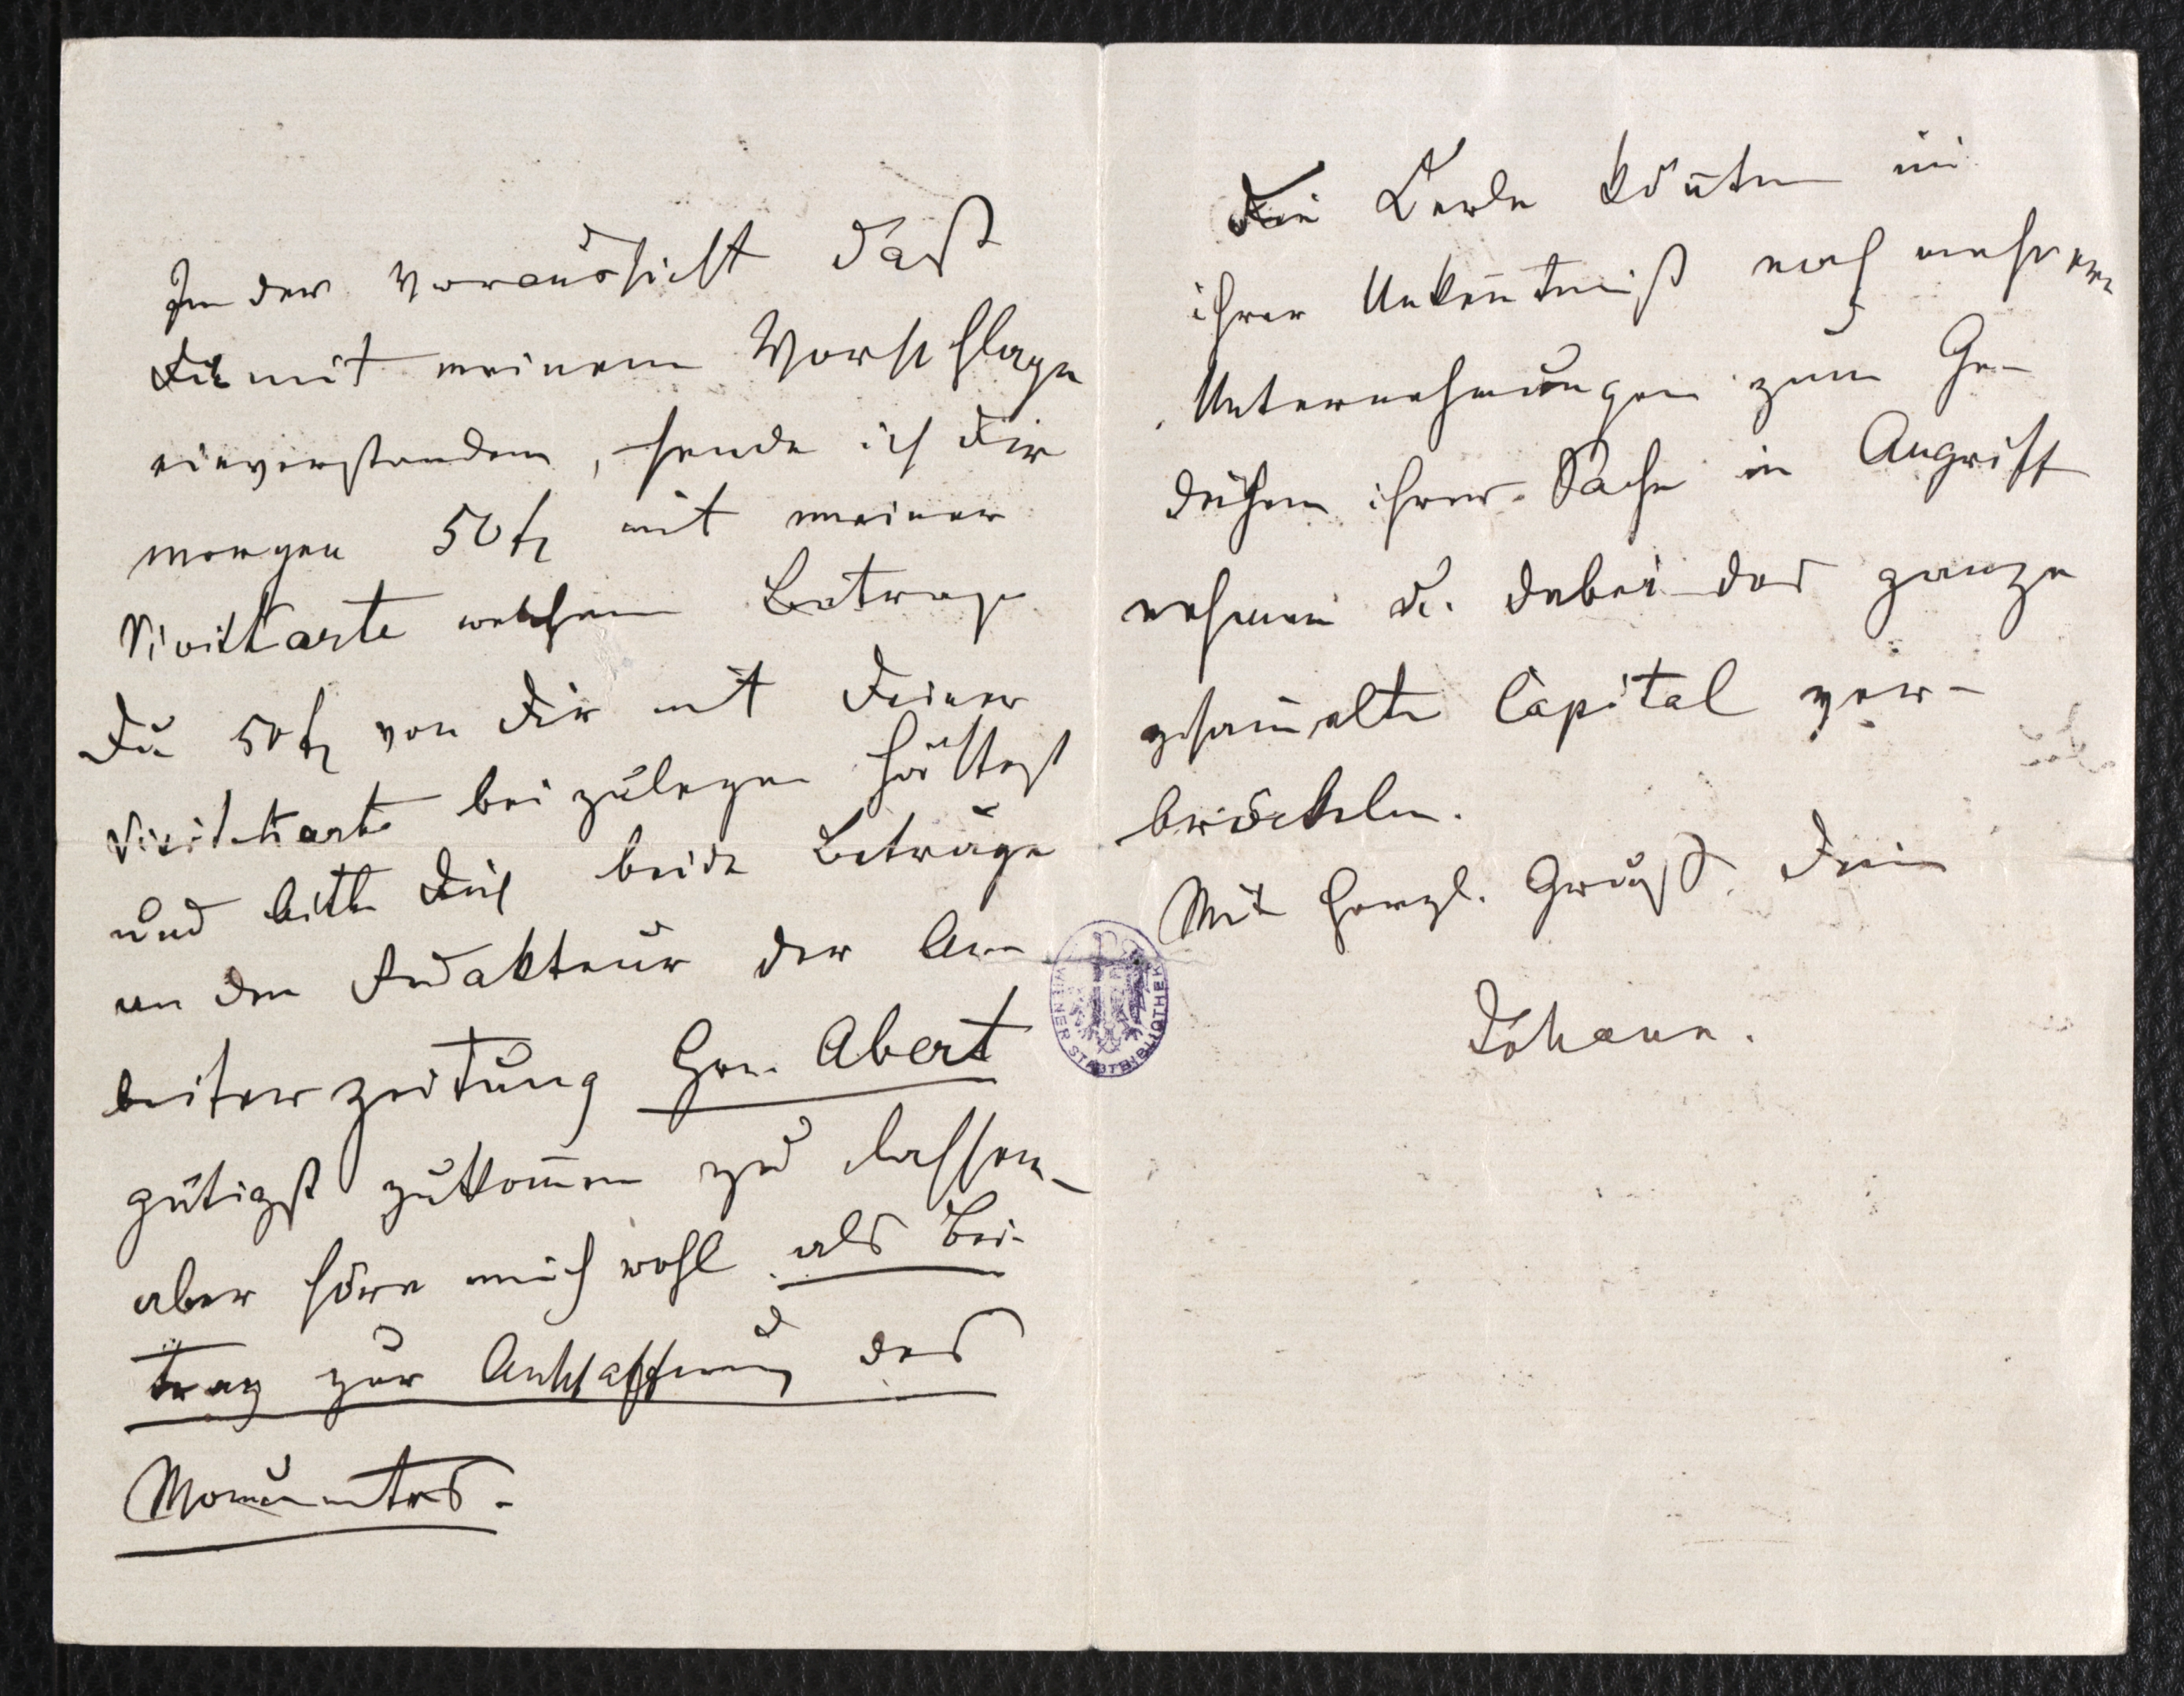 In der Voraussicht daß
Du mit meinem Vorschlage
einverstanden, sende ich Dir
morgen 50 fl mit meiner
Visitkarte welchem Betrage
Du 50 fl von Dir mit Deiner
Visitkarte beizulegen hättest
und bitte Dich beide Beträge
an den Redakteur der Ar-
beiterzeitung Hrn. Abert
gütigst zukom̄en zu lassen –
aber höre mich wohl als Bei-
trag zur Anschaffung des
Monumentes.
Die Kerle kön̄ten in
ihrer Unken̄tniß noch mehrere
Unternehmungen zum Ge-
deihen ihrer Sache in Angriff
nehmen u. dabei das ganze
gesam̄elte Capital ver-
bröckeln.
Mit herzl. Gruß Dein
Johann.
WIENER STADTBIBLIOTHEK